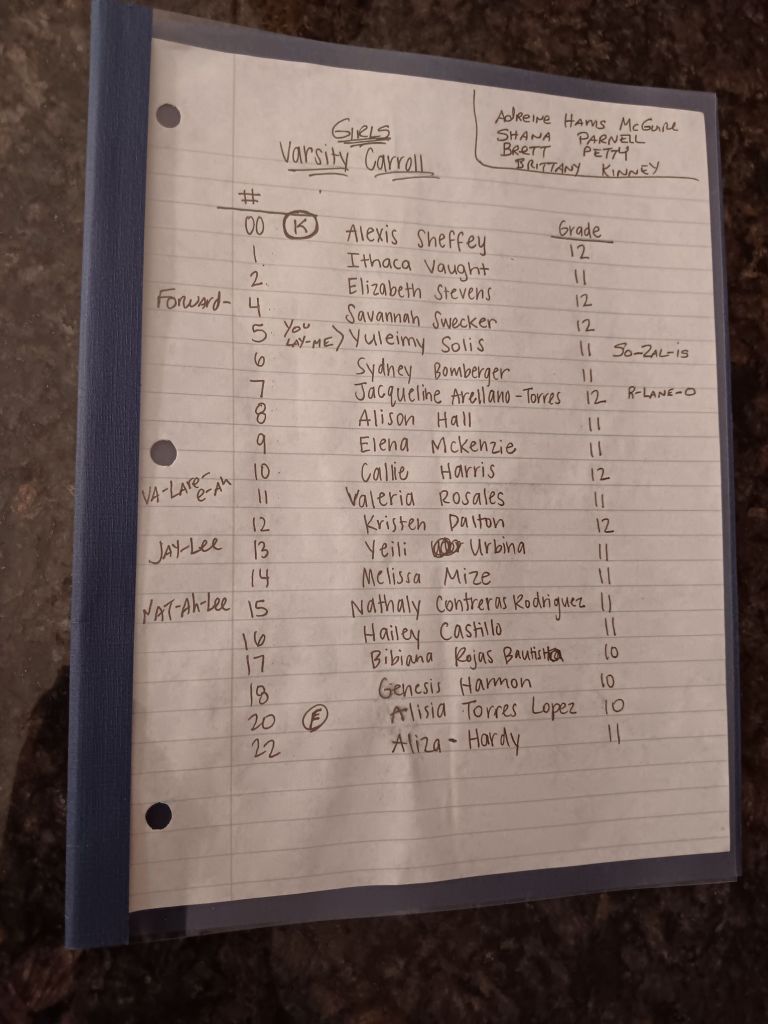 GIRLS
Varsity Carroll
ADREINE HAMS McGUIRE
SHANA PARNELL
BRETT PETTY
BRITTANY KINNEY
# Grade
00 K Alexis Sheffey 12
1. Ithaca Vaught 11
2. Elizabeth Stevens 12
FORWARD- 4 Savannah Swecker 12
5 YOU LAY-ME > Yuleimy Solis 11 SO-ZAL-IS
6 Sydney Bomberger 11
7 Jacqueline Arellano-Torres 12 R-LANE-O
8 Alison Hall 11
9 Elena McKenzie 11
10 Callie Harris 12
VA-LARE-E-AH 11 Valeria Rosales 11
12 Kristen Dalton 12
JAY-LEE 13 Yeili Urbina 11
14 Melissa Mize 11
NAT-AH-LEE 15 Nathaly Contreras Rodriguez 11
16 Hailey Castillo 11
17 Bibiana Rojas Bautista 10
18 Genesis Harmon 10
20 F Alisia Torres Lopez 10
22 Aliza - Hardy 11